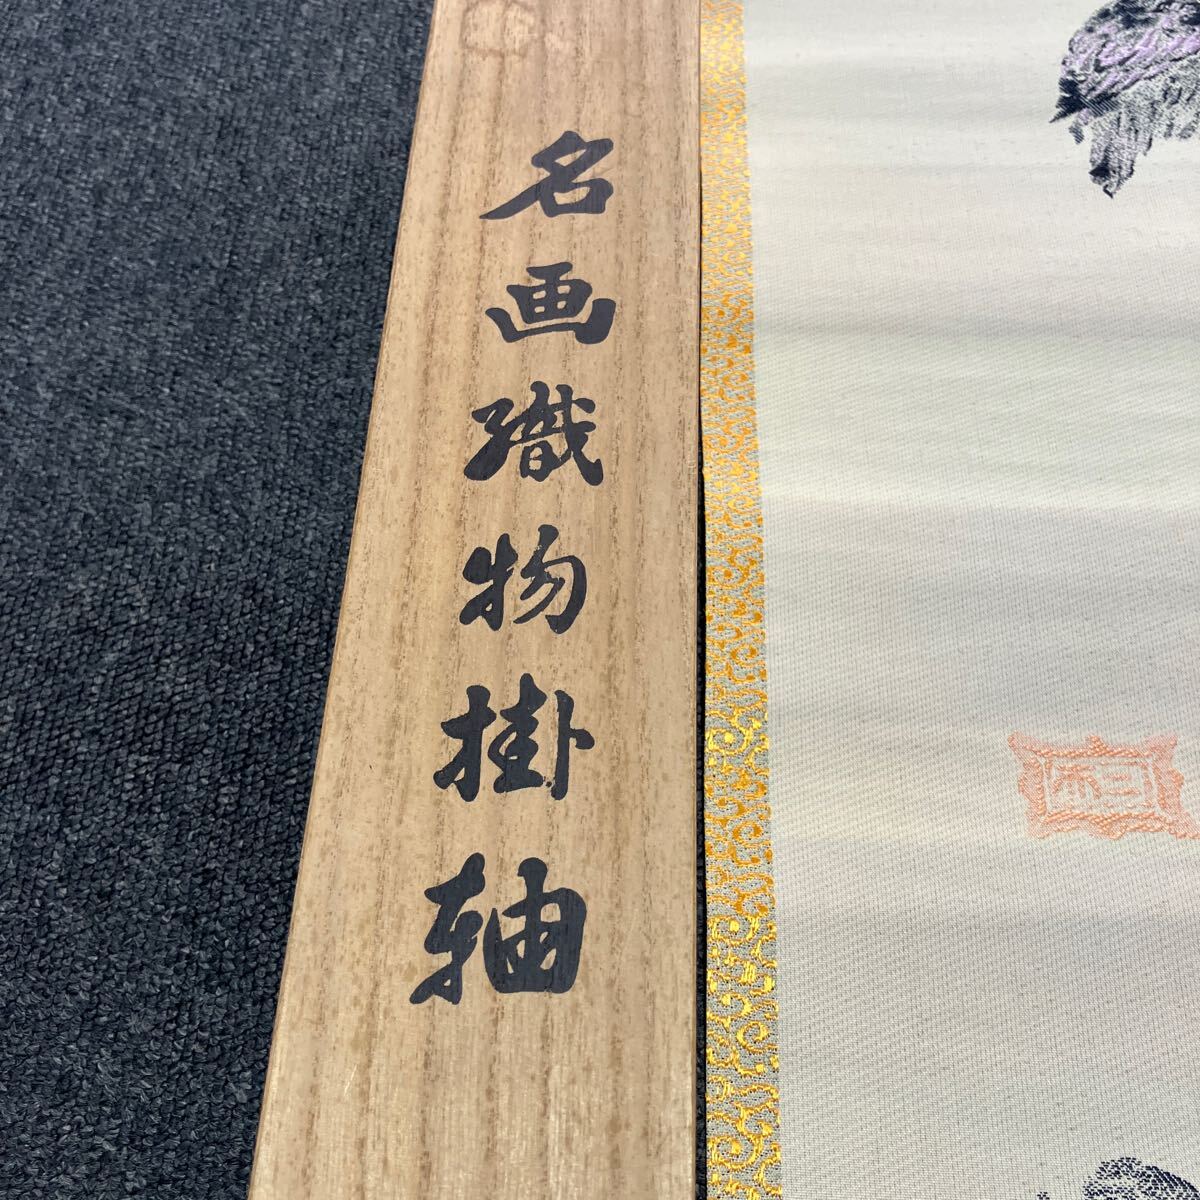 名画織物掛軸